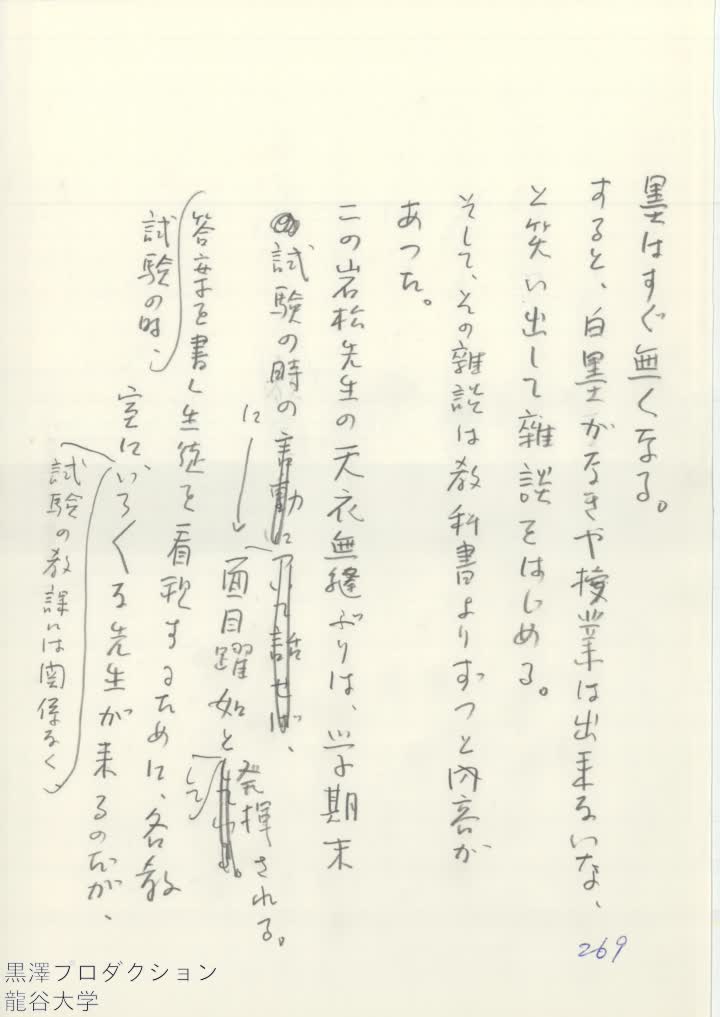 墨はすぐ無くなる。
すると、白墨がなきや授業は出来ないな、
と笑い出して雑談をはじめる。
そして、その雑談は教科書よりずつと内容が
あつた。
この岩松先生の天衣無縫ぶりは、学期末
試験の時の言動について話せば、
に
面目躍如と
して
発揮される。
試験の時、
答案を書く生徒を看視するために、各教
室に、いろくな先生が来るのだが、
試験の教課には関係なく
269
黒澤プロダクション
龍谷大学